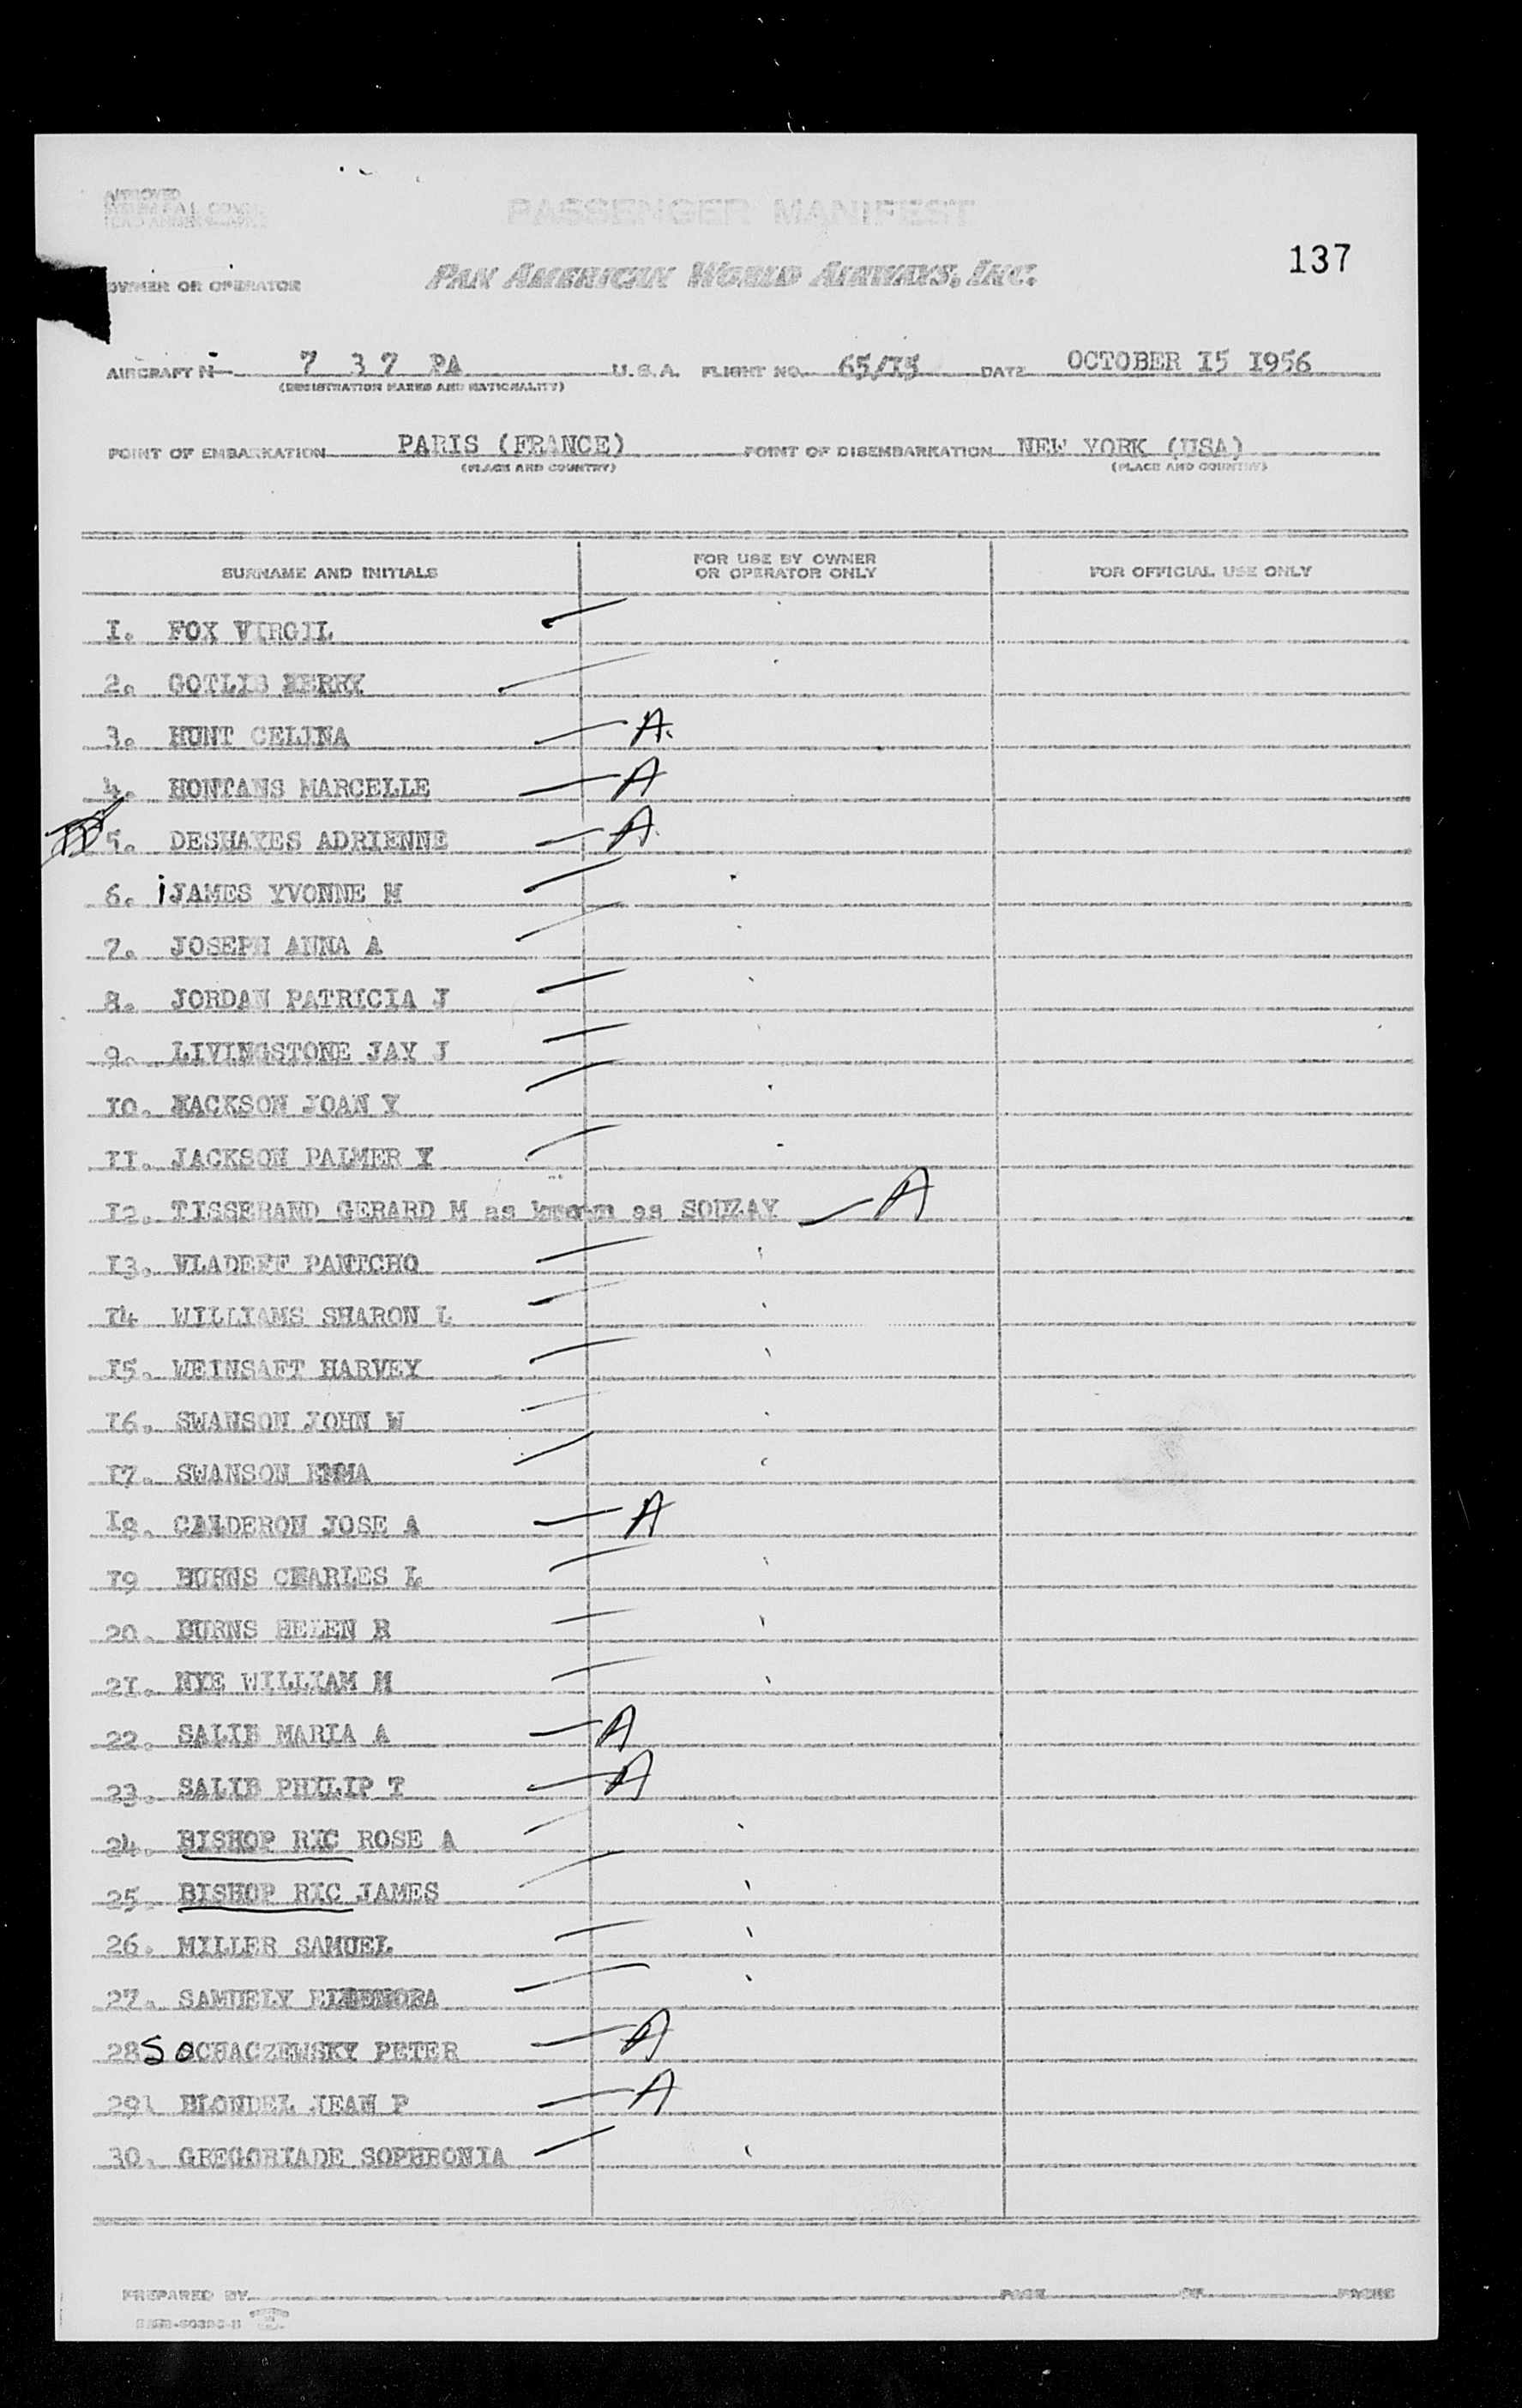 APPROVED
PASSENGER MANIFEST
137
OWNER OR OPERATOR PAN AMERICAN WORLD AIRWAYS, INC.
AIRCRAFT N 7 3 7 PA U.S.A. FLIGHT NO. 65/I5 DATE OCTOBER I5 I956
(REGISTRATION MARKS AND NATIONALITY)
POINT OF EMBARKATION PARIS (FRANCE) POINT OF DISEMBARKATION NEW YORK (USA)
(PLACE AND COUNTRY) (PLACE AND COUNTRY)
SURNAME AND INITIALS FOR USE BY OWNER OR OPERATOR ONLY FOR OFFICIAL USE ONLY
I. FOX VIRGIL
2. GOTLIB
3. HUNT CELINA A.
4. HONTANS MARCELLE A
5. DESHAYES ADRIENNE A
6. JAMES YVONNE M
7. JOSEPH ANNA A
8. JORDAN PATRICIA J
9. LIVINGSTONE JAY J
I0. JOAN Y
II. JACKSON PALMER Y
I2. TISSERAND GERARD M as known as SOUZAY A
I3. VLADEFF PANTCHO
I4 WILLIAMS SHARON L
I5. WEINSAFT HARVEY
I6. SWANSON JOHN W
I7. SWANSON EMMA
I8. CALDERON JOSE A A
I9 BURNS CHARLES L
20. BURNS HELEN R
2I. NYE WILLIAM M
22. SALIB MARIA A A
23. SALIB PHILIP T A
24. BISHOP RIC ROSE A
25. BISHOP RIC JAMES
26. MILLER SAMUEL
27. SAMUELY
28 SOCHACZEWSKY PETER A
29 BLONDEL JEAN P A
30. GREGORIADE SOPHRONIA
PREPARED BY PAGE OF PAGES